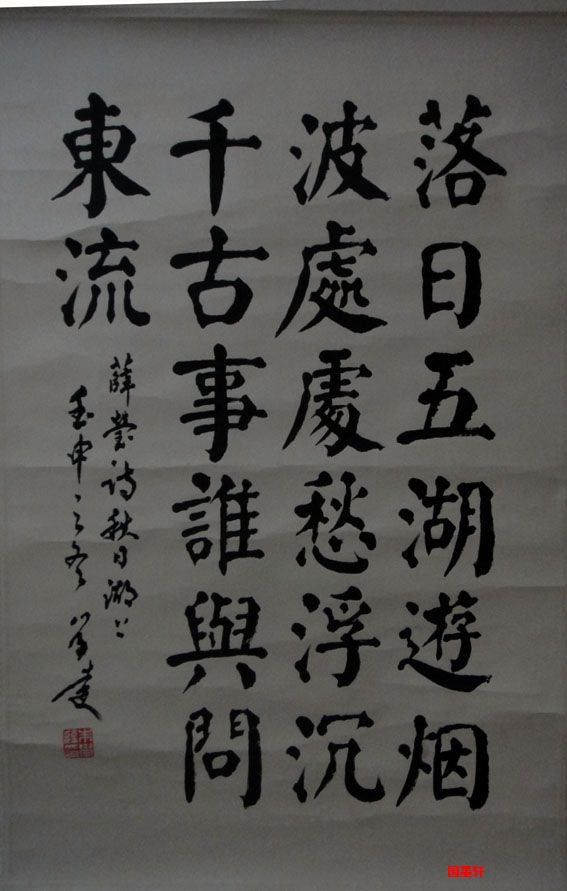 落日五湖遊烟
波處處愁浮沉
千古事誰與問
東流
薛瑩詩秋日湖上
壬申之冬
国墨轩